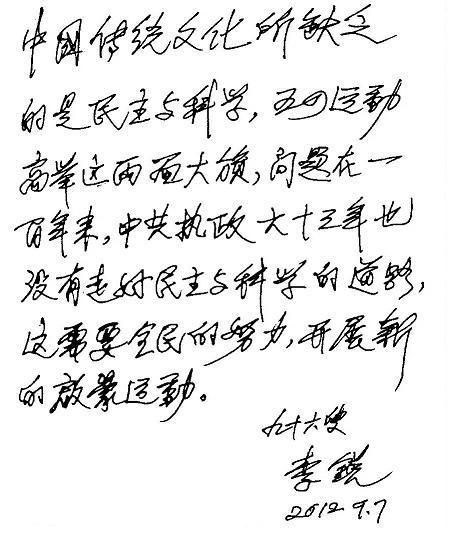 中國传统文化所缺乏
的是民主与科学，五四运动
高举这两面大旗，问题在一
百年来，中共执政六十三年也
没有走好民主与科学的道路，
这需要全民的努力，开展新
的启蒙运动。
九十六叟
李锐
2012.9.7